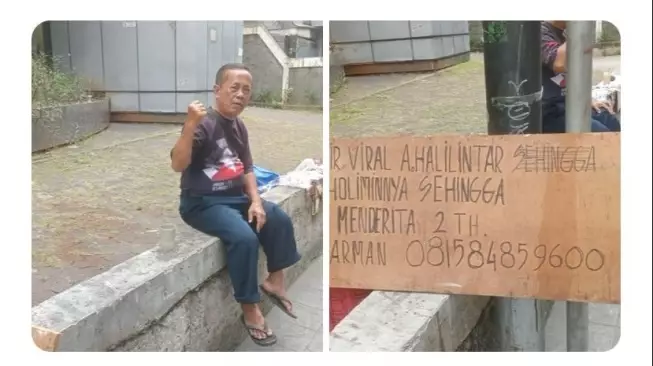 R. VIRAL A.HALILINTAR SEHINGGA
HOLIMINNYA SEHINGGA
MENDERITA 2 TH.
ARMAN 081584859600